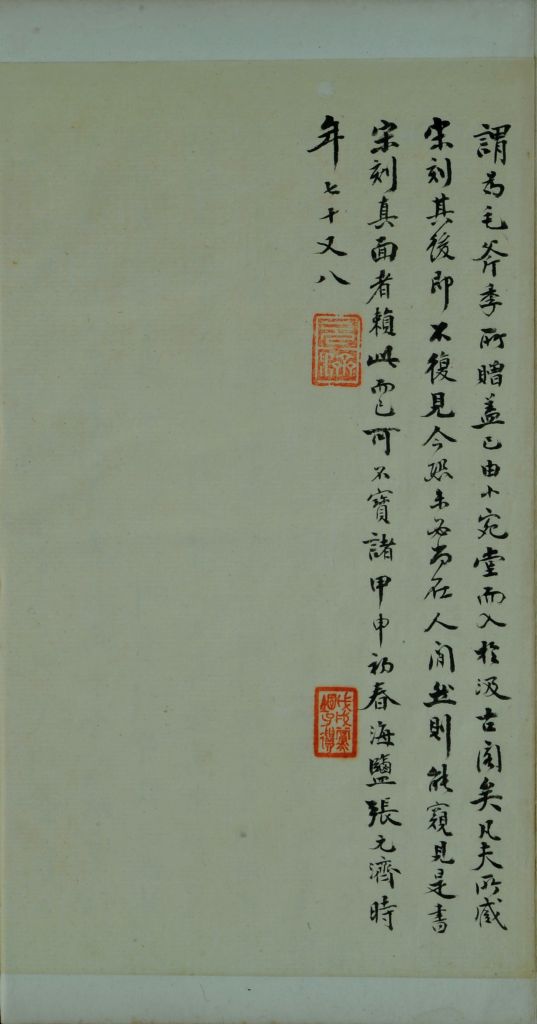 謂為毛斧季所贈蓋已由小宛堂而入於汲古閣矣凡夫所藏
宋刻其後即不復見今恐未必尚在人間然則能窺見是書
宋刻真面者賴此而已可不寶諸甲申初春海鹽張元濟時
年七十又八
戊戌黨錮子遺